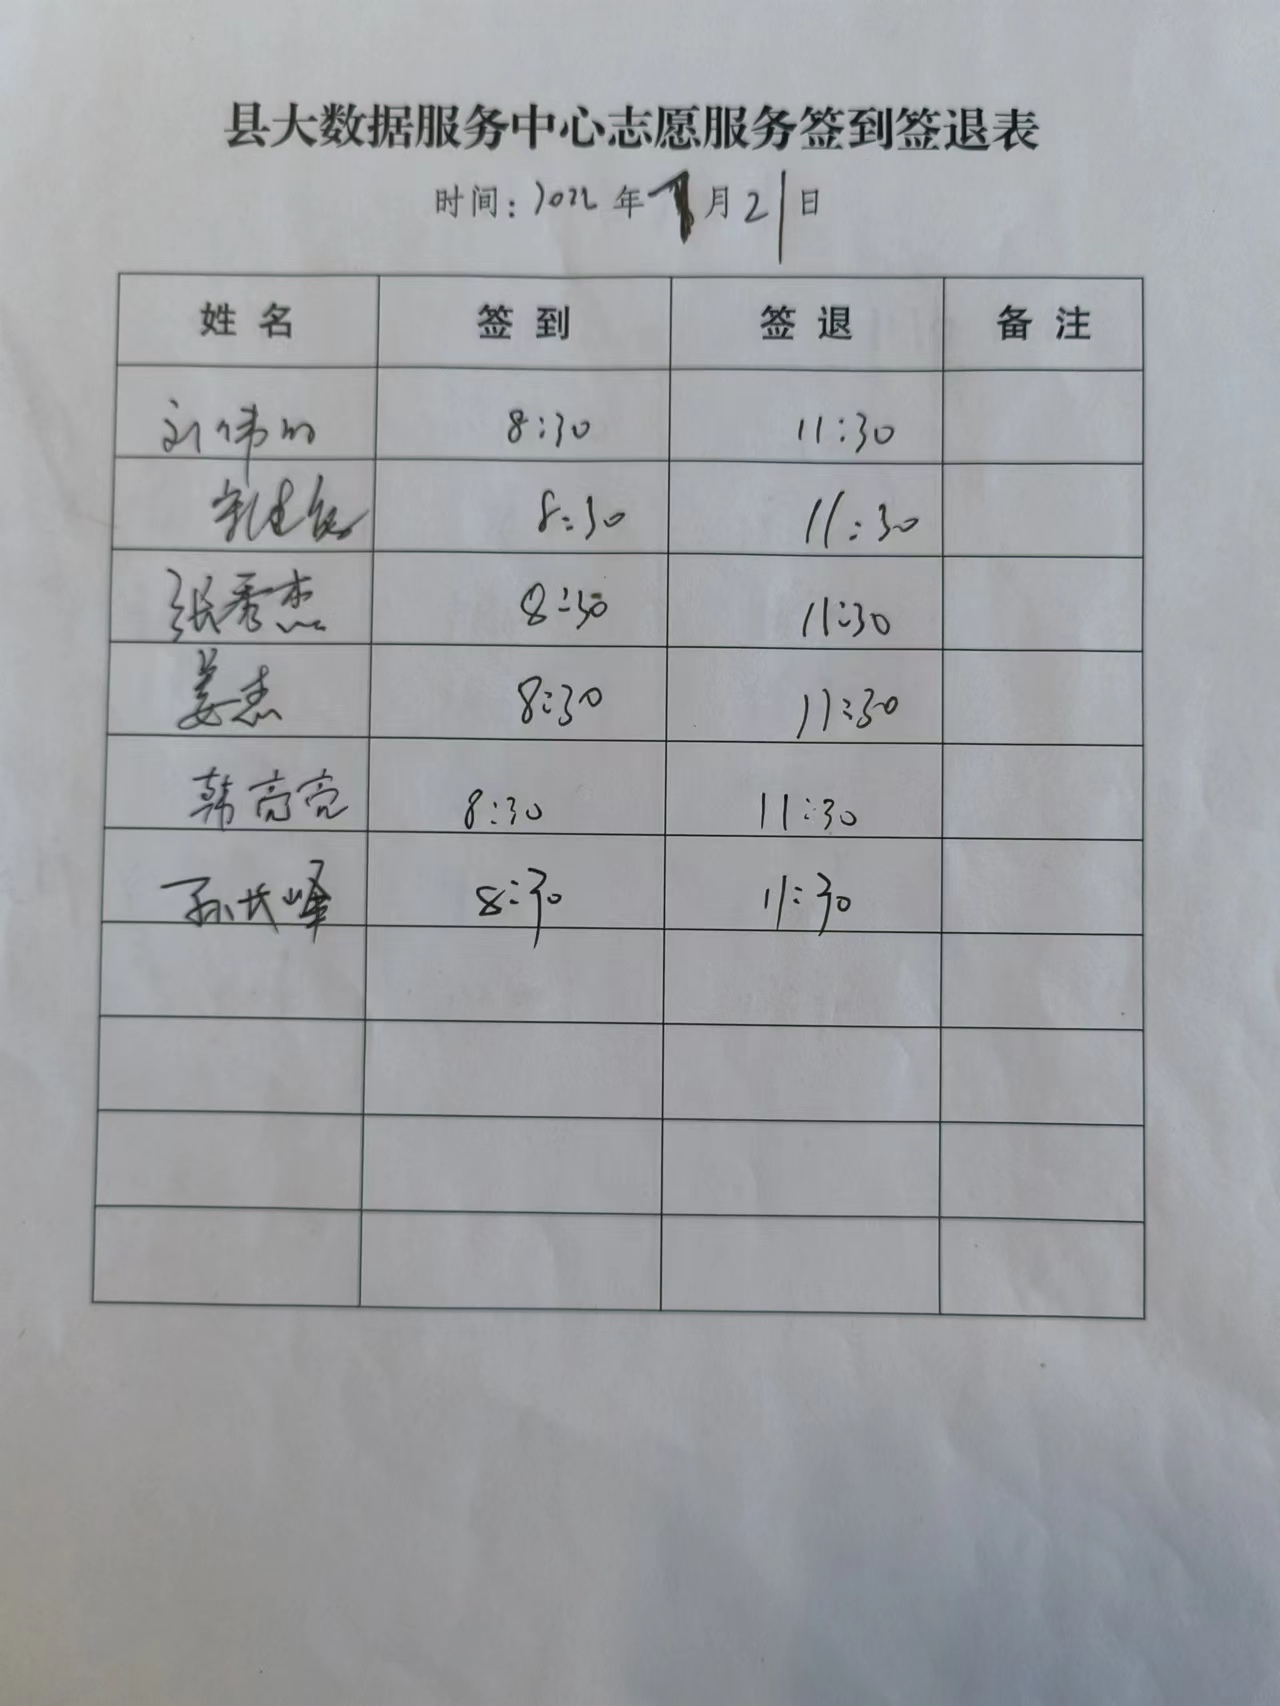 县大数据服务中心志愿服务签到签退表
时间：2022年7月21日
姓名 签到 签退 备注
刘伟 8:30 11:30
8:30 11:30
张秀杰 8:30 11:30
姜杰 8:30 11:30
韩亮亮 8:30 11:30
孙长峰 8:30 11:30